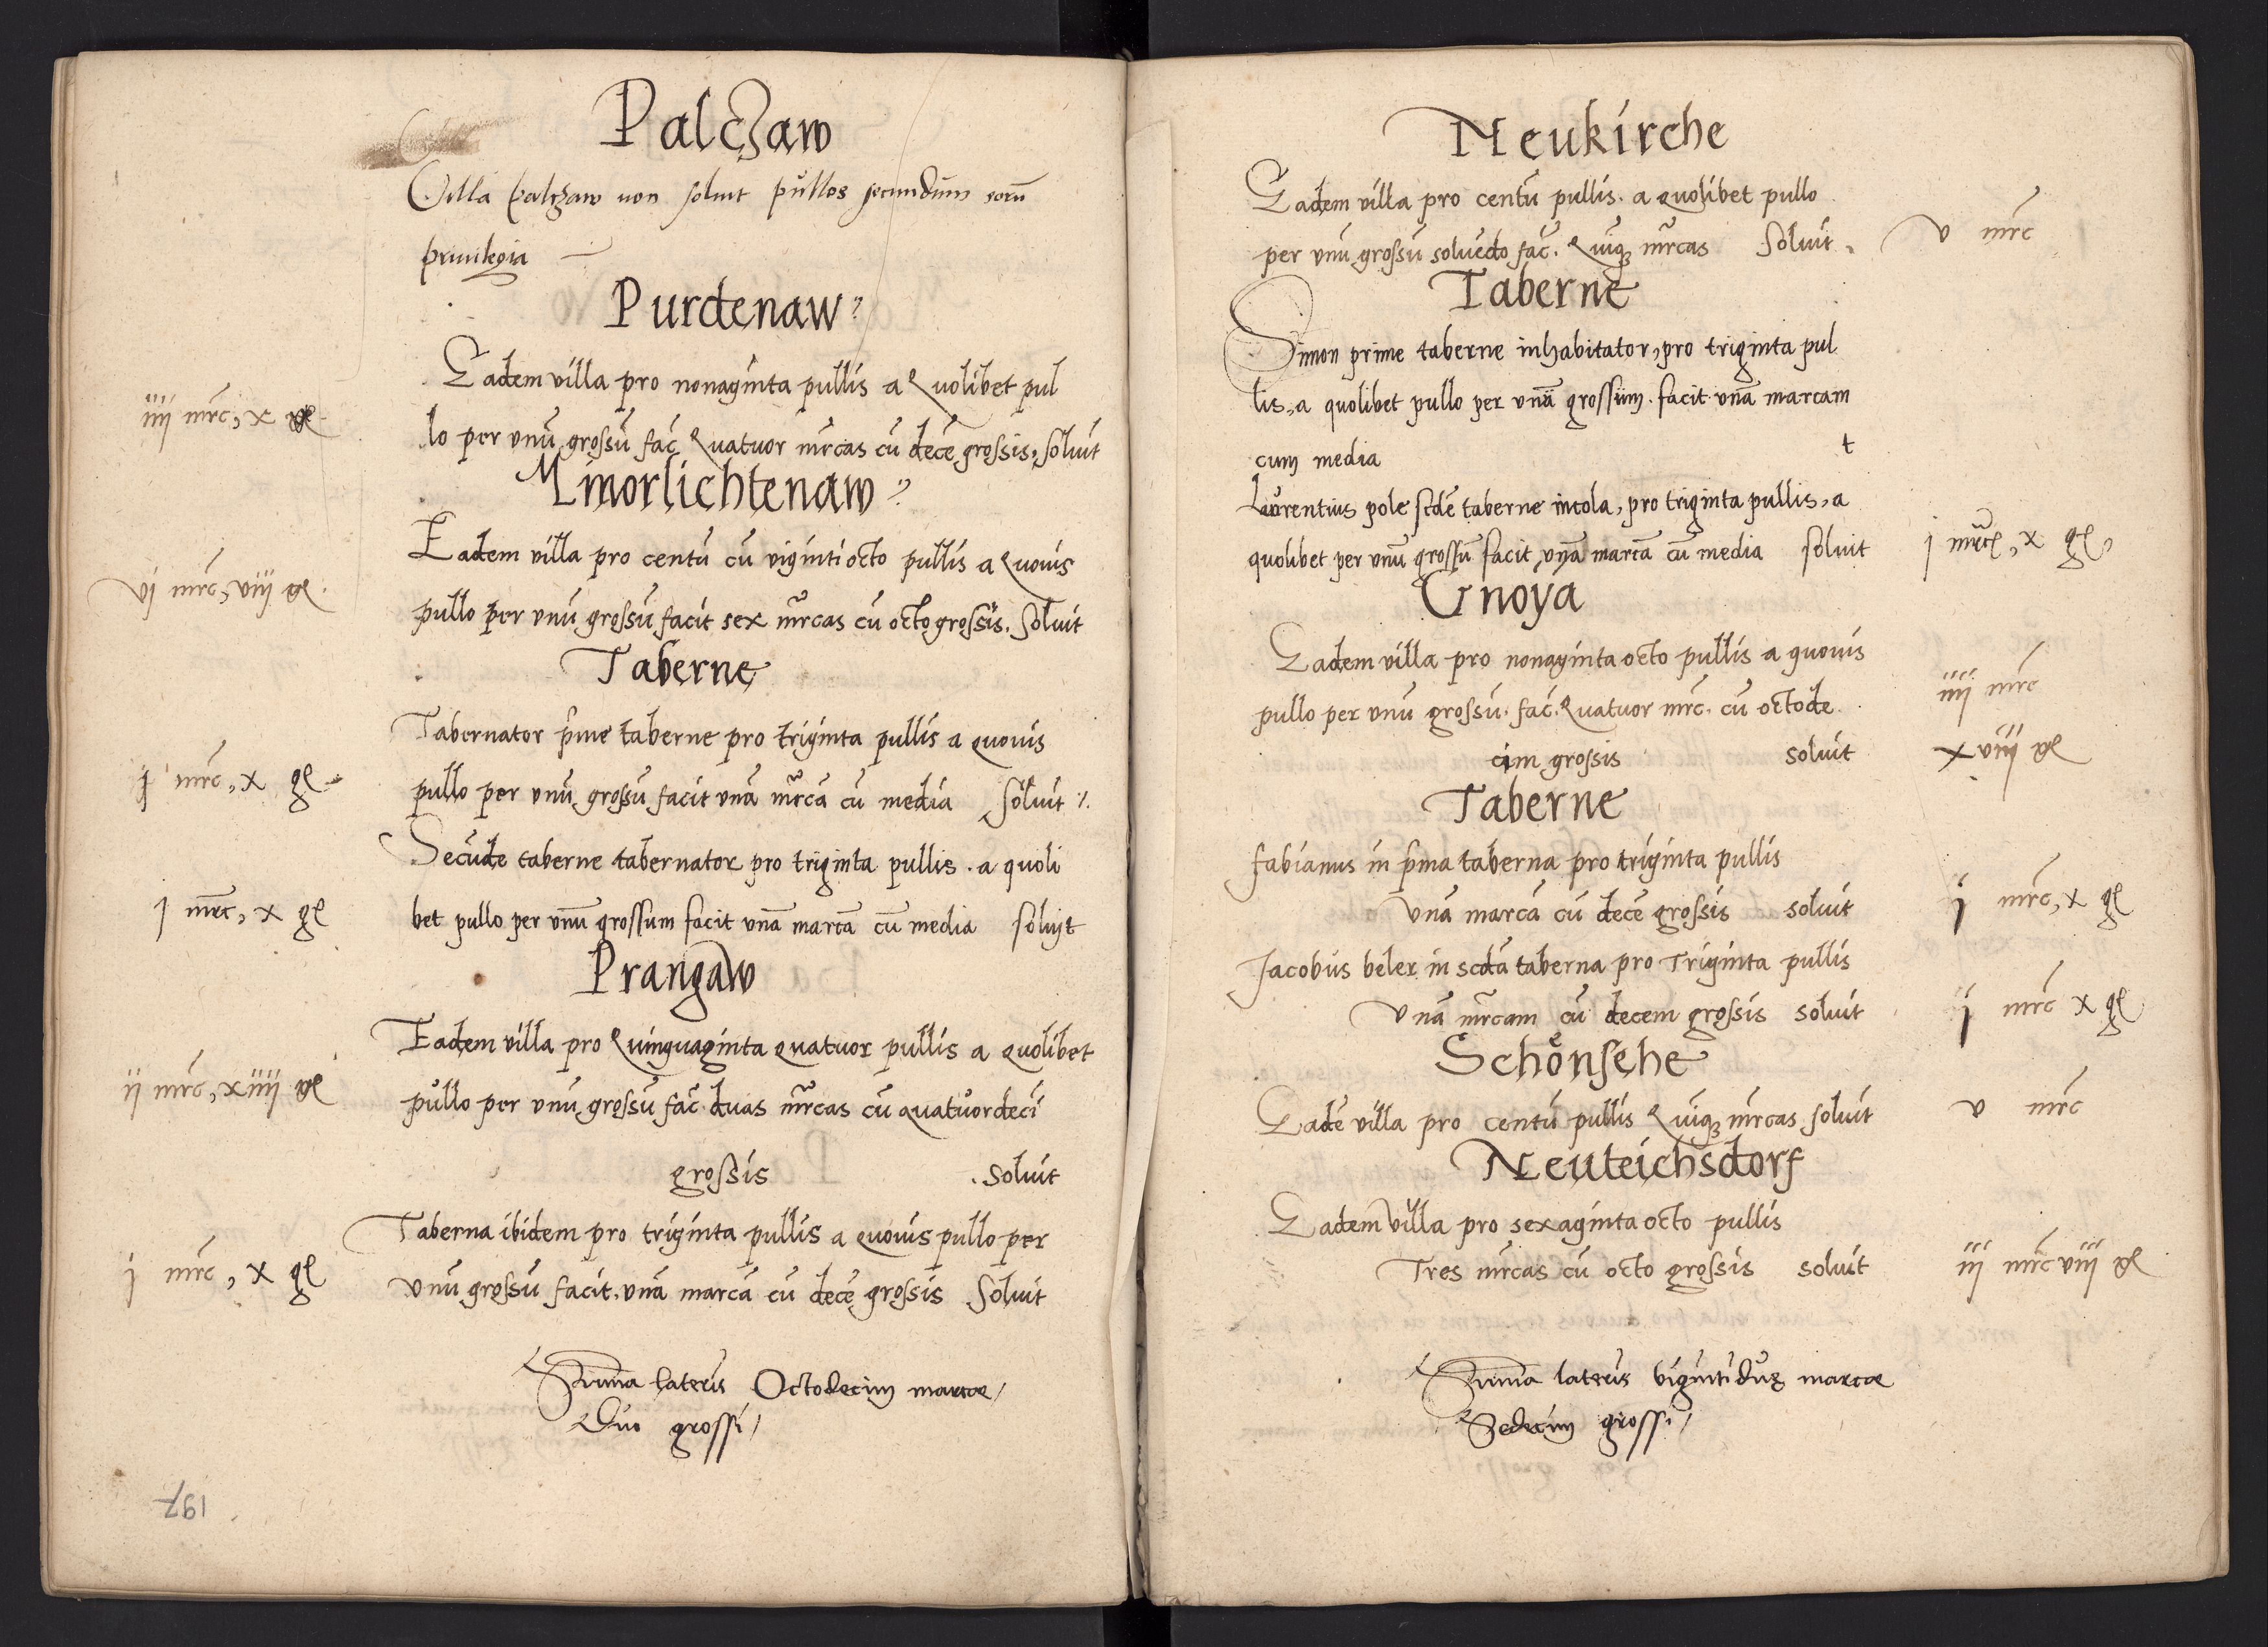 Palczaw
Villa palczaw non soluit pullos secundum eorū
priuilegia
Purdenaw
Eadem villa pro nonaginta pullis a Quolibet pul
iiij mrc, x gl
lo per vnū grossū fac Quatuor mrcas cū decē grossis, soluit
Minorlichtenaw
Eadem villa pro centū cū viginti octo pullis a Quouis
vj mrc, viij gl.
pullo per vnū grossū facit sex mrcas cū octo grossis. soluit
Taberne
Tabernator prīme taberne pro triginta pullis a quouis
j mrc, x gl
pullo per vnū grossū facit vnā mrcā cū media soluit
Secūde taberne tabernator pro triginta pullis . a quoli
j mrc, x gl
bet pullo per vnū grossum facit vnā marcā cū media soluit
Prangaw
Eadem villa pro Quinquaginta quatuor pullis a quolibet
ij mrc, xiiij gl
pullo per vnū grossū fac duas mrcas cū quatuordecī
grossis . soluit
Taberna ibidem pro triginta pullis a quouis pullo per
j mrc, x gl
vnū grossū facit, vnā marcā cū decē grossis soluit
Summa lateris Octodecim marcae
Duo grossi
197
Neukirche
Eadem villa pro centū pullis . a quolibet pullo
per vnū grossū soluēdo fac. Quīqꝫ mrcas soluit
v mrc
Taberne
Simon prime taberne inhabitator, pro triginta pul
lis, a quolibet pullo per vnū grossum . facit vnā marcam
cum media t
Laurentius pole scdē taberne incola, pro triginta pullis, a
quolibet per vnū grossū facit vnā marcā cū media soluit
j mrc, x gl
Gnoya
Eadem villa pro nonaginta octo pullis a quouis
pullo per vnū grossū . fac. Quatuor mrc. cū octode
iiij mrc
cim grossis soluit
xviij gl
Taberne
fabianus in prīma taberna pro triginta pullis
vnā marcā cū decē grossis soluit
j mrc, x gl
Jacobus beler in scdā taberna pro Triginta pullis
vnā mrcam cū decem grossis soluit
j mrc x gl
Schönsehe
Eadē villa pro centū pullis Quīqꝫ mrcas soluit
v mrc
Neuteichsdorf
Eadem villa pro sexaginta octo pullis
Tres mrcas cū octo grossis soluit
iij mrc viij gl
Summa lateris vigintiduę marcae
Sedecim grossi